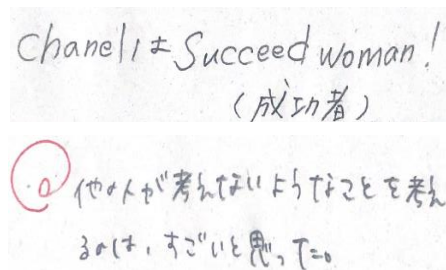 Chanelは Succeed woman!
(成功者)
他の人が考えないようなことを考え
るのは、すごいと思った。